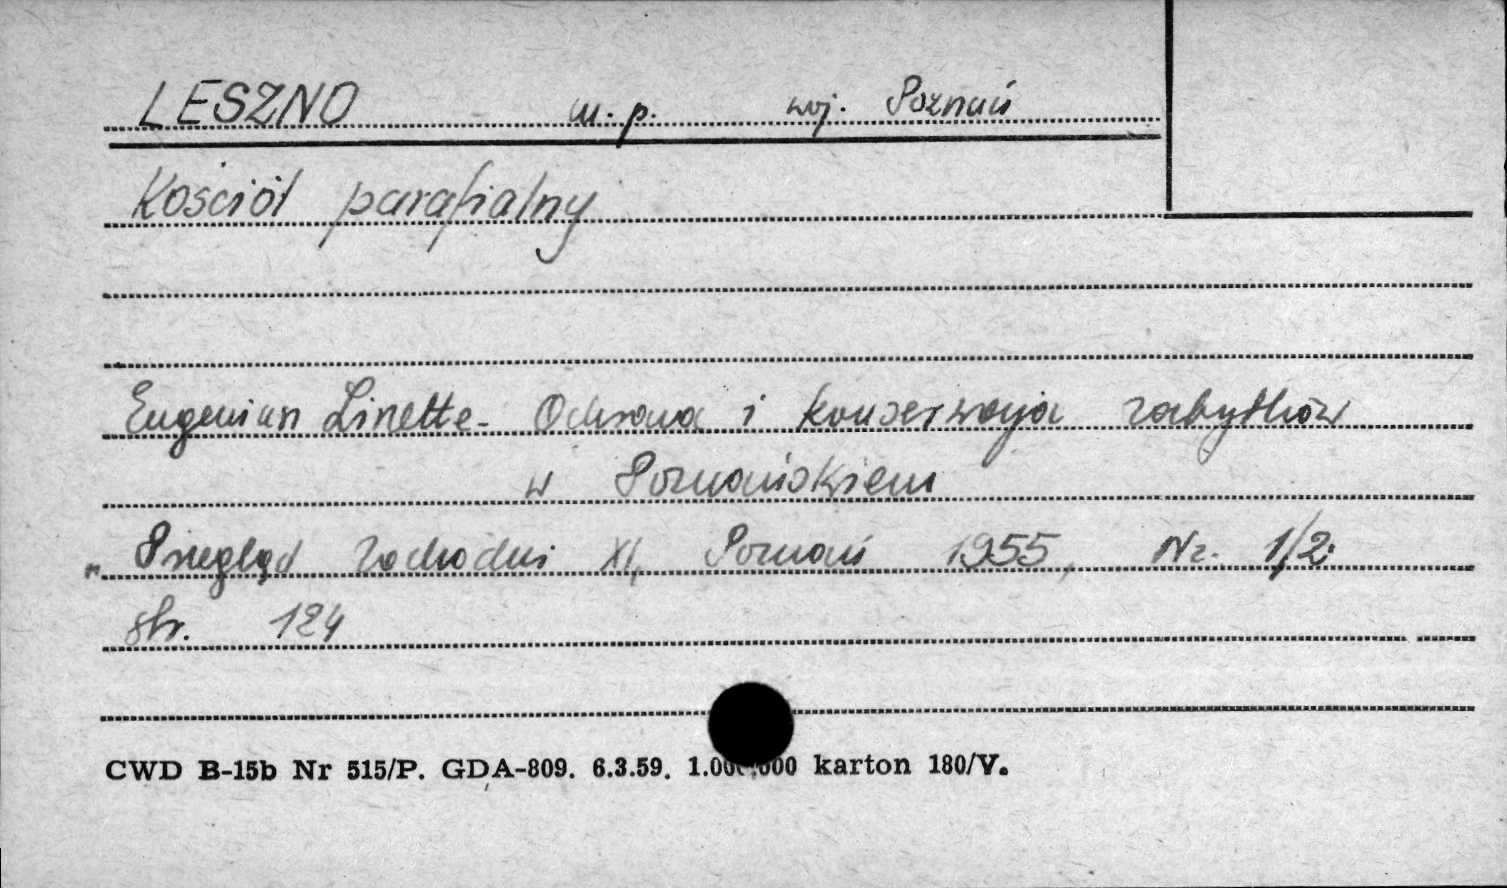 LESZNO m.p. woj. Poznań
Kościół parafialny
Eugenian Linette - Ochrona i konserwacja zabytków
w Poznańskiem
"Przegląd Zachodni XI, Poznań 1955, Nr. 1/2.
str. 124
CWD B-15b Nr 515/P. GDA-809. 6.3.59. 1.000.000 karton 180/V.